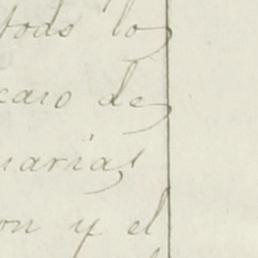 todo lo
caso de
narias
on y el